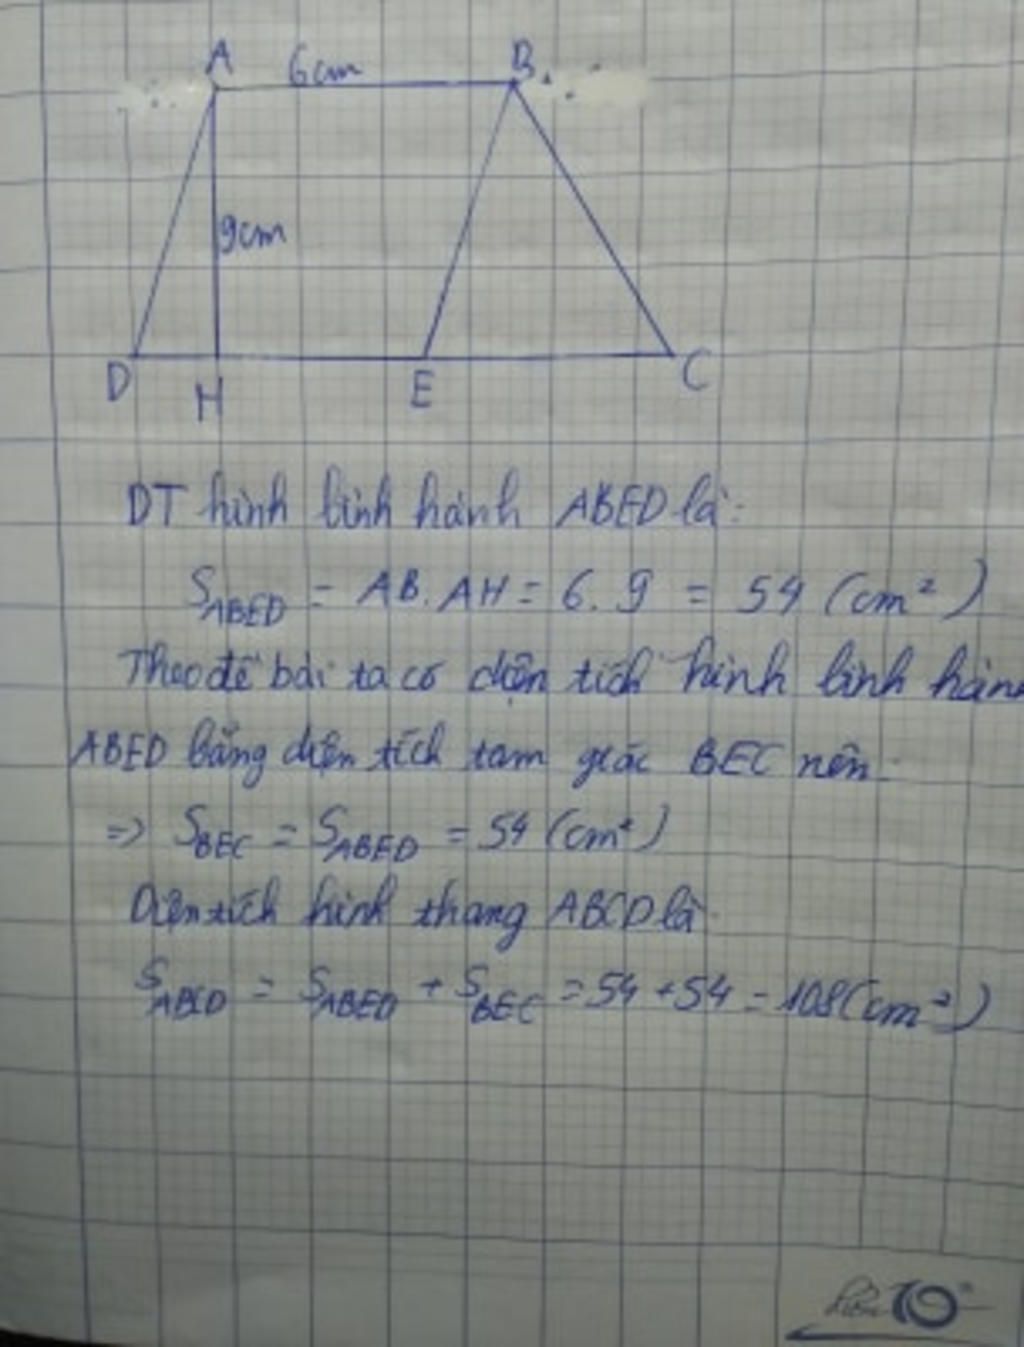 A 6cm B
9cm
D H E C
DT hình bình hành ABED là:
S_ABED = AB. AH = 6. 9 = 54 (cm²)
Theo đề bài ta có diện tích hình bình hành
ABED bằng diện tích tam giác BEC nên
=> S_BEC = S_ABED = 54 (cm²)
Diện tích hình thang ABCD là
S_ABCD = S_ABED + S_BEC = 54 + 54 = 108 (cm²)